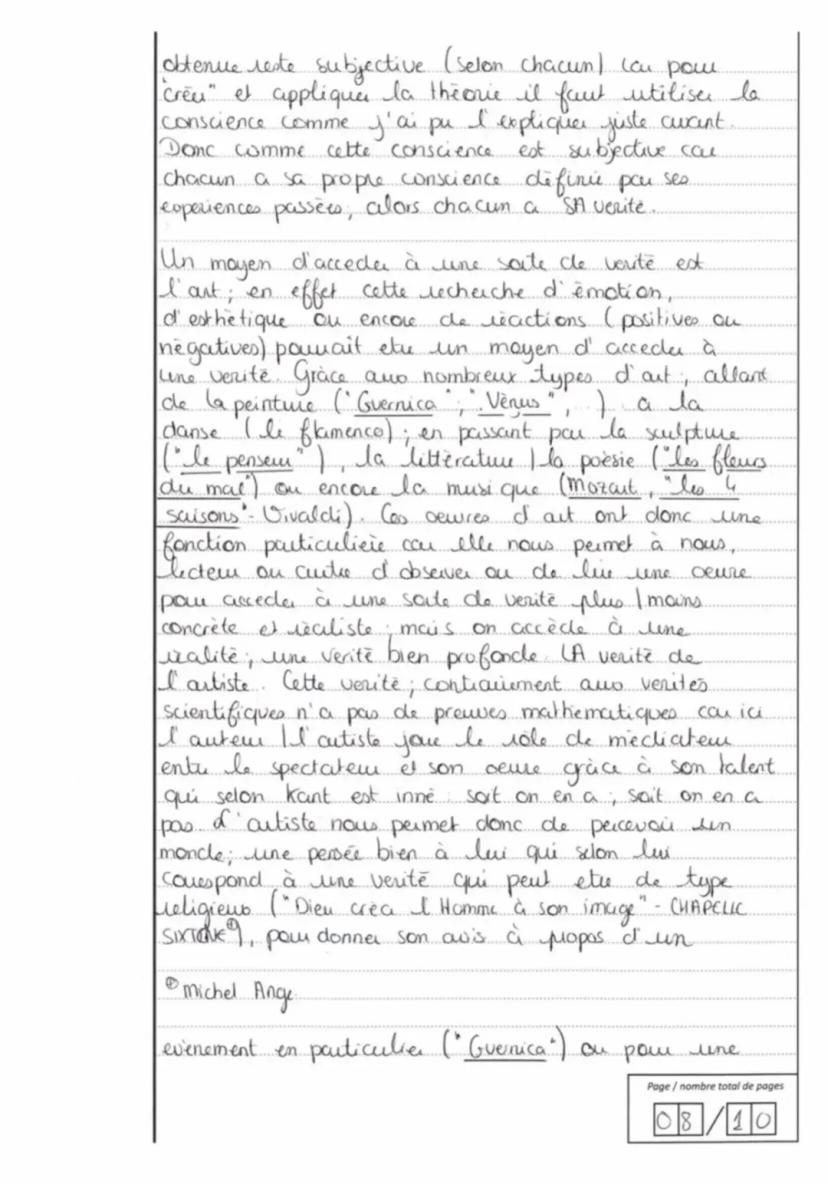 obtenue reste subjective (selon chacun) car pour
"créer" et appliquer la théorie il faut utiliser la
conscience comme j'ai pu l'expliquer juste avant.
Donc comme cette conscience est subjective car
chacun a sa propre conscience définie par ses
experiences passées, alors chacun a SA verité.
Un moyen d'acceder à une sorte de verité est
l'art ; en effet cette recherche d'émotion,
d'esthétique ou encore de réactions (positives ou
négatives) pourrait etre un moyen d'acceder à
une verité. Grâce aux nombreux types d'art ; allant
de la peinture ("Guernica" ; "Vénus", ) a la
danse (le flamenco) ; en passant par la sculpture
("le penseur"), la littérature | la poésie ("les fleurs
du mal") ou encore la musique (Mozart, "les 4
saisons" - Vivaldi). Ces oeuvres d'art ont donc une
fonction particulière car elle nous permet à nous,
lecteur ou autre d'observer ou de lire une oeuvre
pour acceder à une sorte de verité plus | moins
concrète et réaliste ; mais on accède à une
réalité ; une verité bien profonde. LA verité de
l'artiste. Cette verité ; contrairement aux verités
scientifiques n'a pas de preuves mathematiques car ici
l'auteur | l'artiste joue le rôle de médiateur
entre le spectateur et son oeuvre grâce à son talent
qui selon Kant est inné : soit on en a ; soit on en a
pas. L'artiste nous permet donc de percevoir un
monde ; une pensée bien à lui qui selon lui
correspond à une verité qui peut etre de type
religieux ("Dieu créa l'Homme à son image" - CHAPELLE
SIXTINE①), pour donner son avis à propos d'un
① Michel Ange.
evènement en particulier ("Guernica") ou pour une
Page / nombre total de pages
08/10